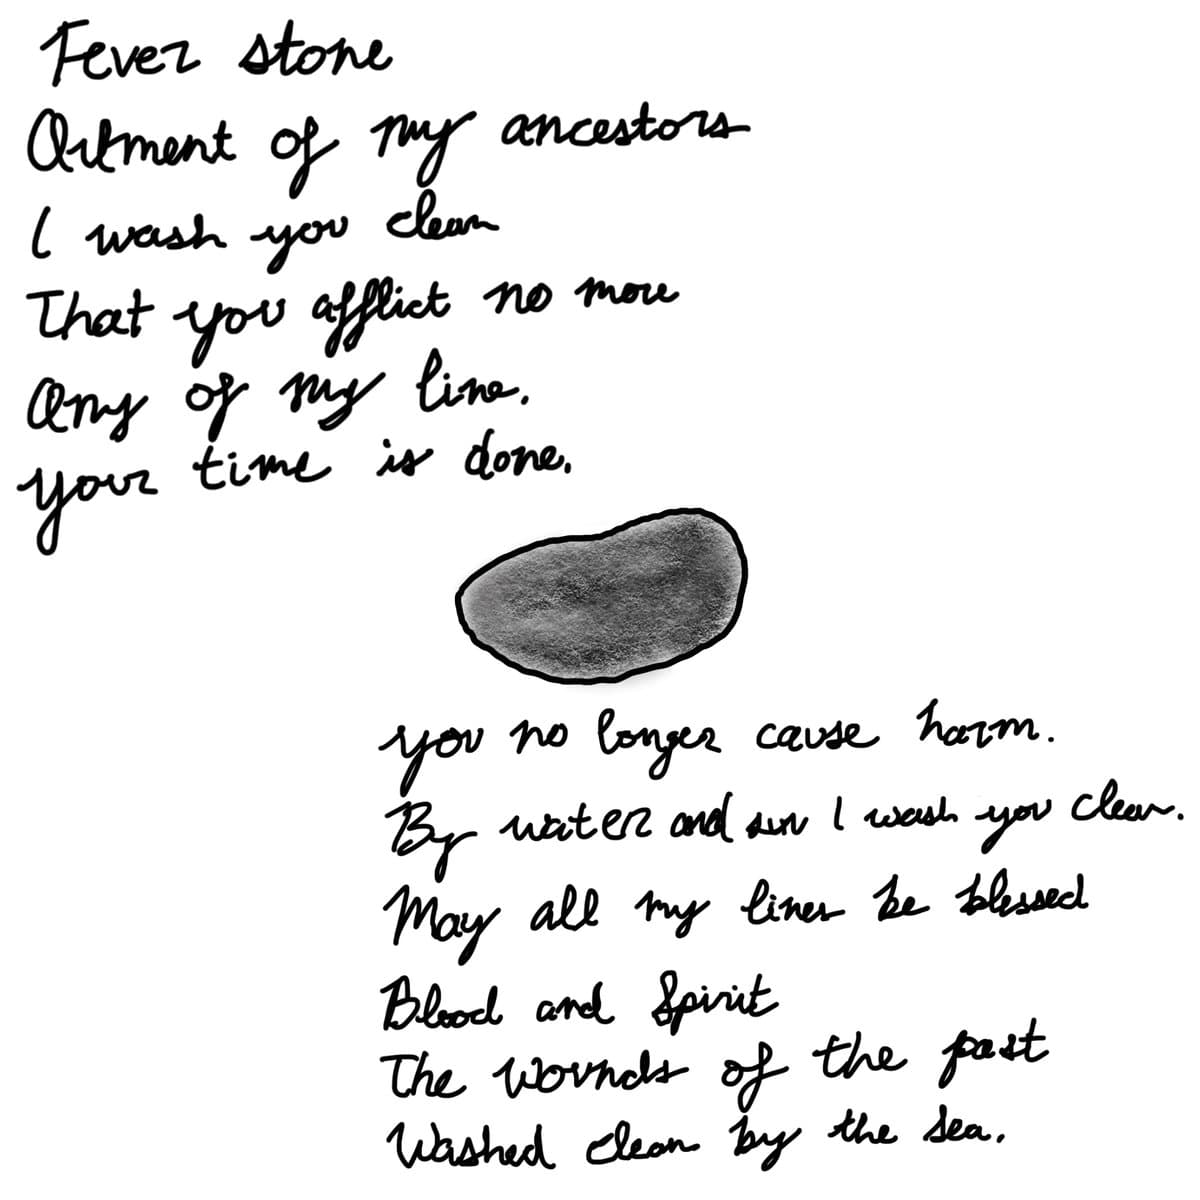 Fever stone
Ailment of my ancestors
I wash you clean
That you afflict no more
Any of my line.
Your time is done.
You no longer cause harm.
By water and sun I wash you clean.
May all my lines be blessed
Blood and Spirit
The wounds of the past
Washed clean by the sea.